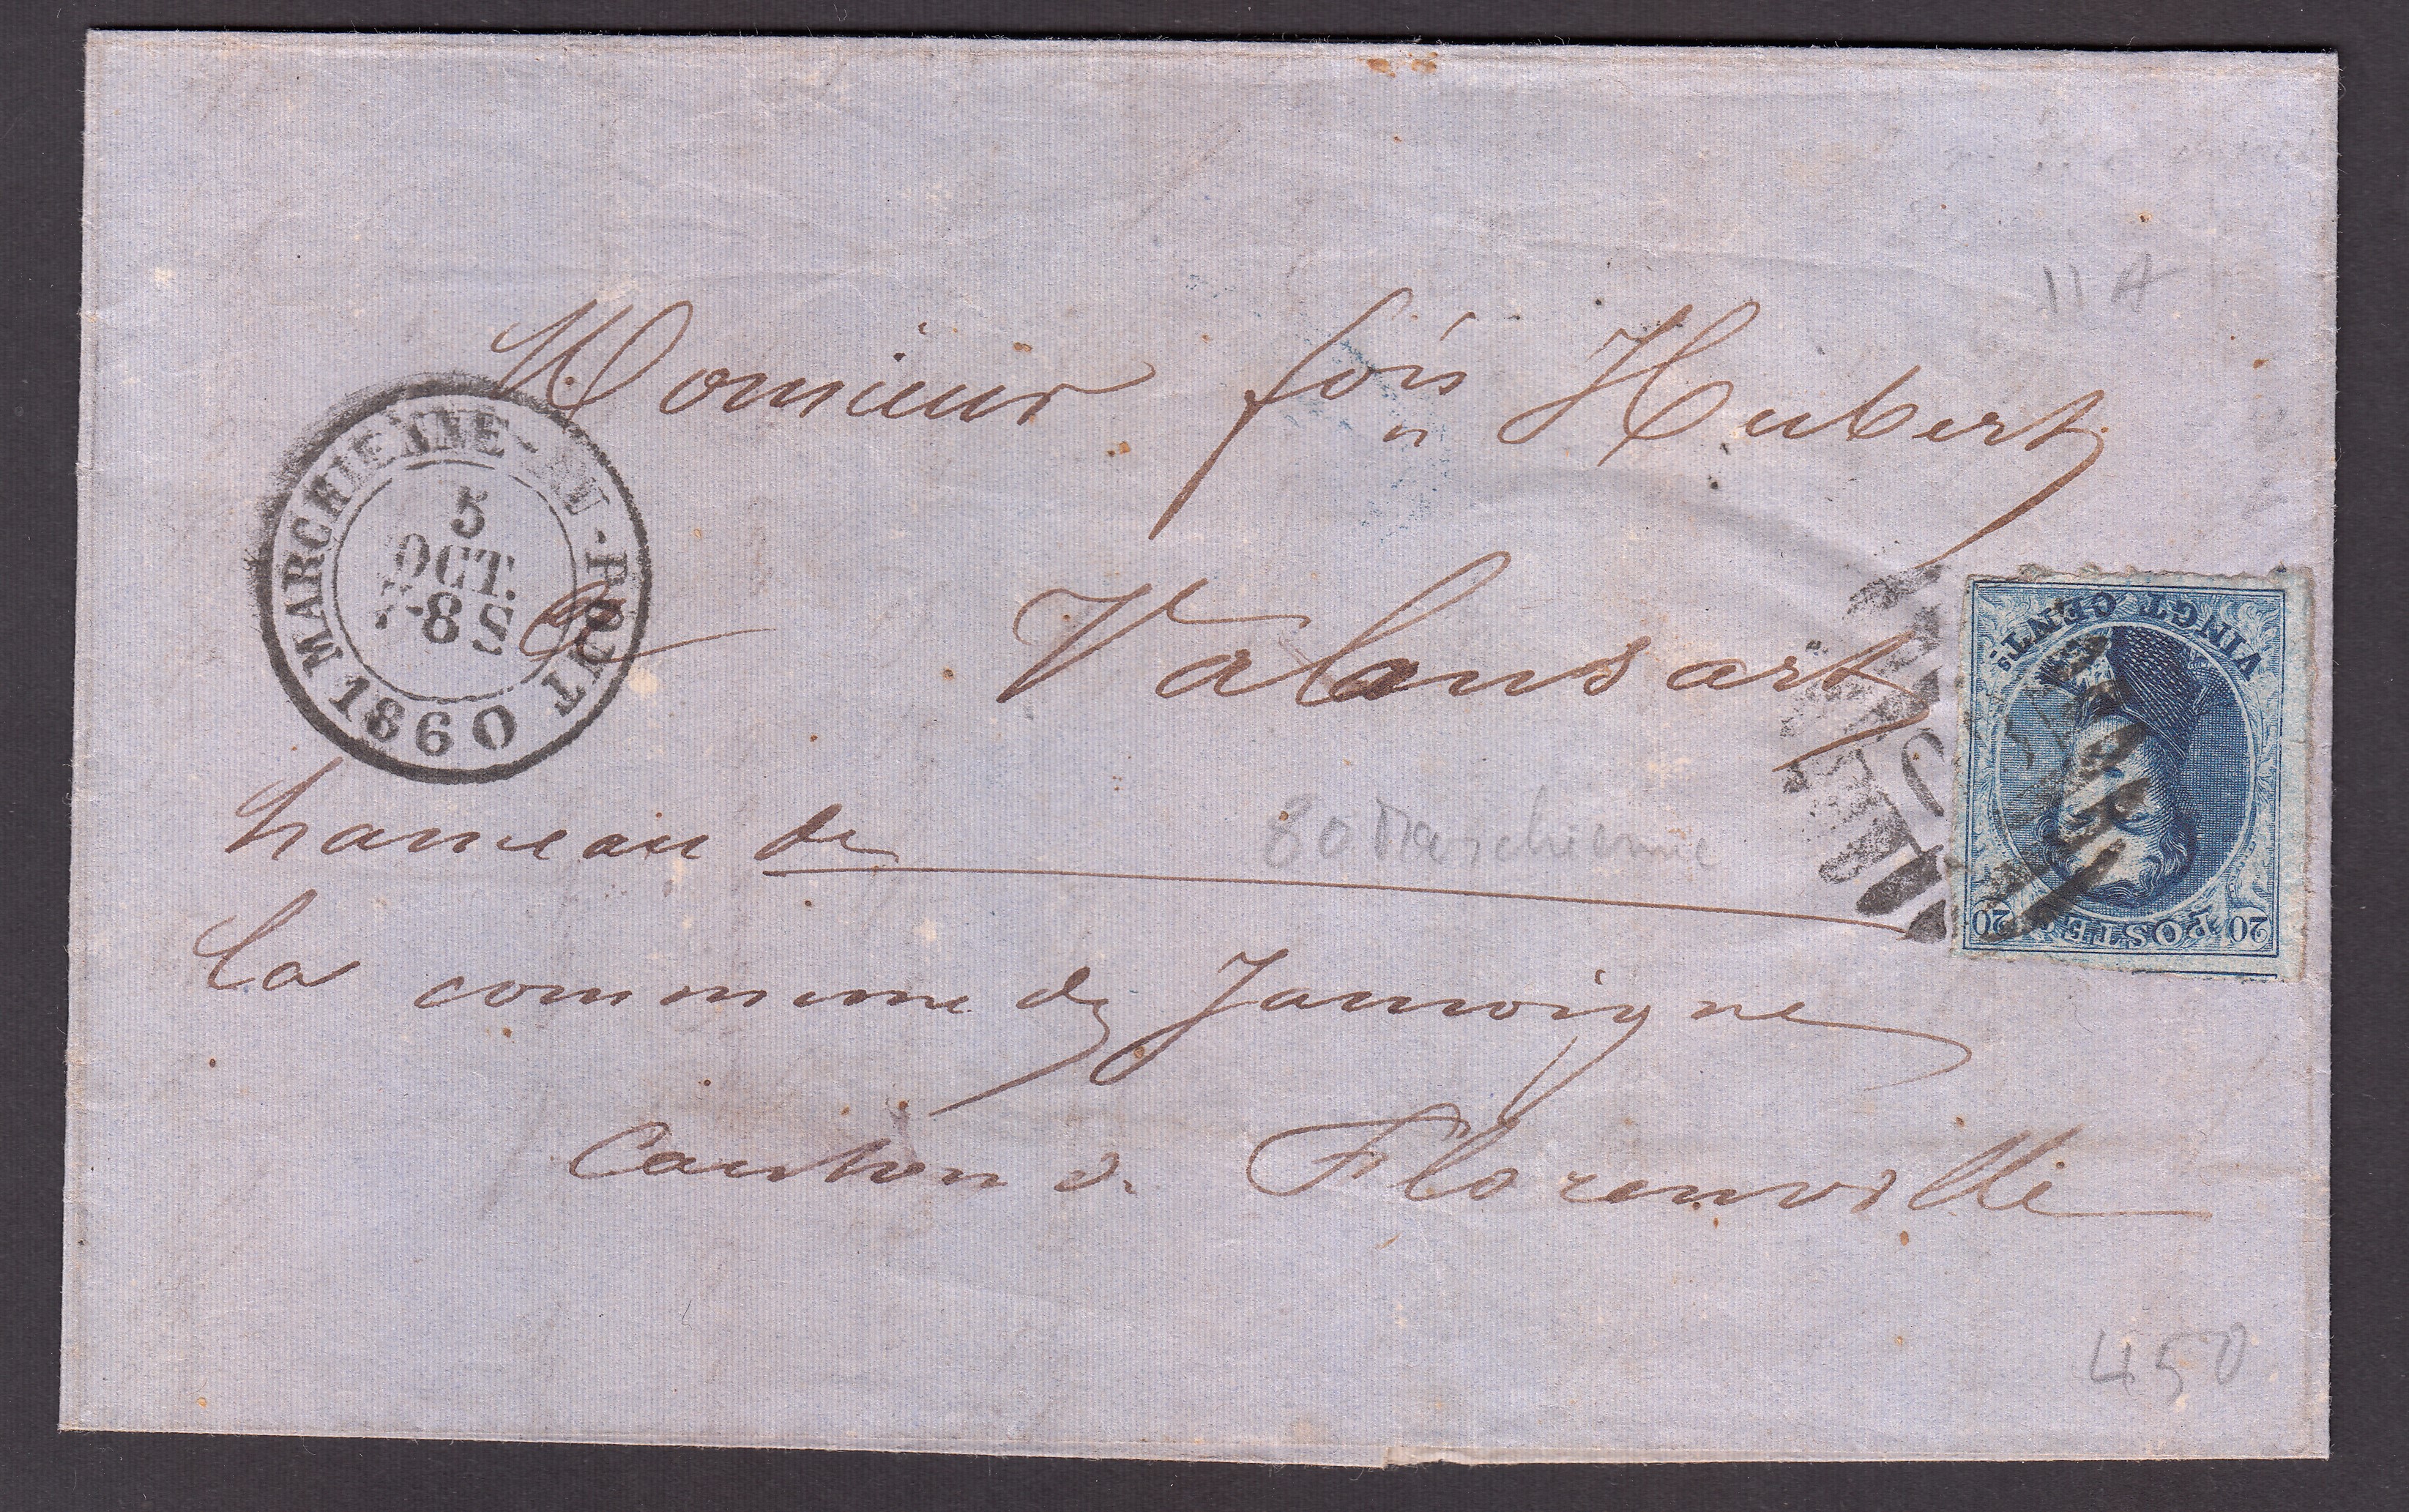 11A
Monsieur fois Hubert
MARCHIENNE-AU-PONT
5
OCT.
7-8 S
1860
a Valansart
VINGT CENTS
POSTES
20 20
hameau de
80 Marchienne
la commune de Jamoigne
Canton de Florenville
450